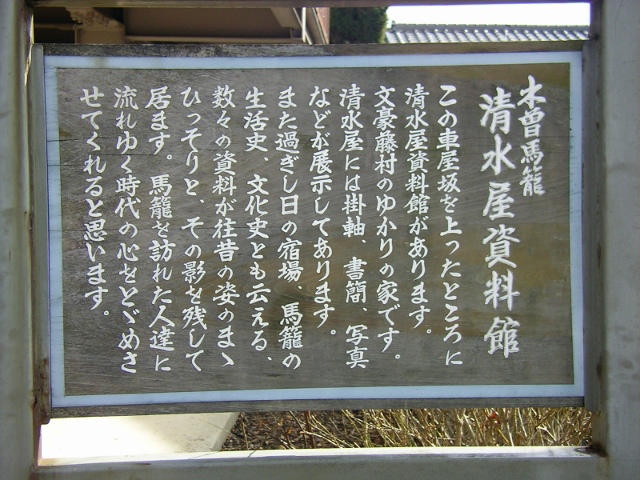 木曽馬籠
清水屋資料館
この車屋坂を上ったところに
清水屋資料館があります。
文豪藤村のゆかりの家です。
清水屋には掛軸、書簡、写真
などが展示してあります。
また過ぎし日の宿場、馬籠の
生活史、文化史とも云える、
数々の資料が往昔の姿のまゝ
ひっそりと、その影を残して
居ます。馬籠を訪れた人達に
流れゆく時代の心をとゞめさ
せてくれると思います。